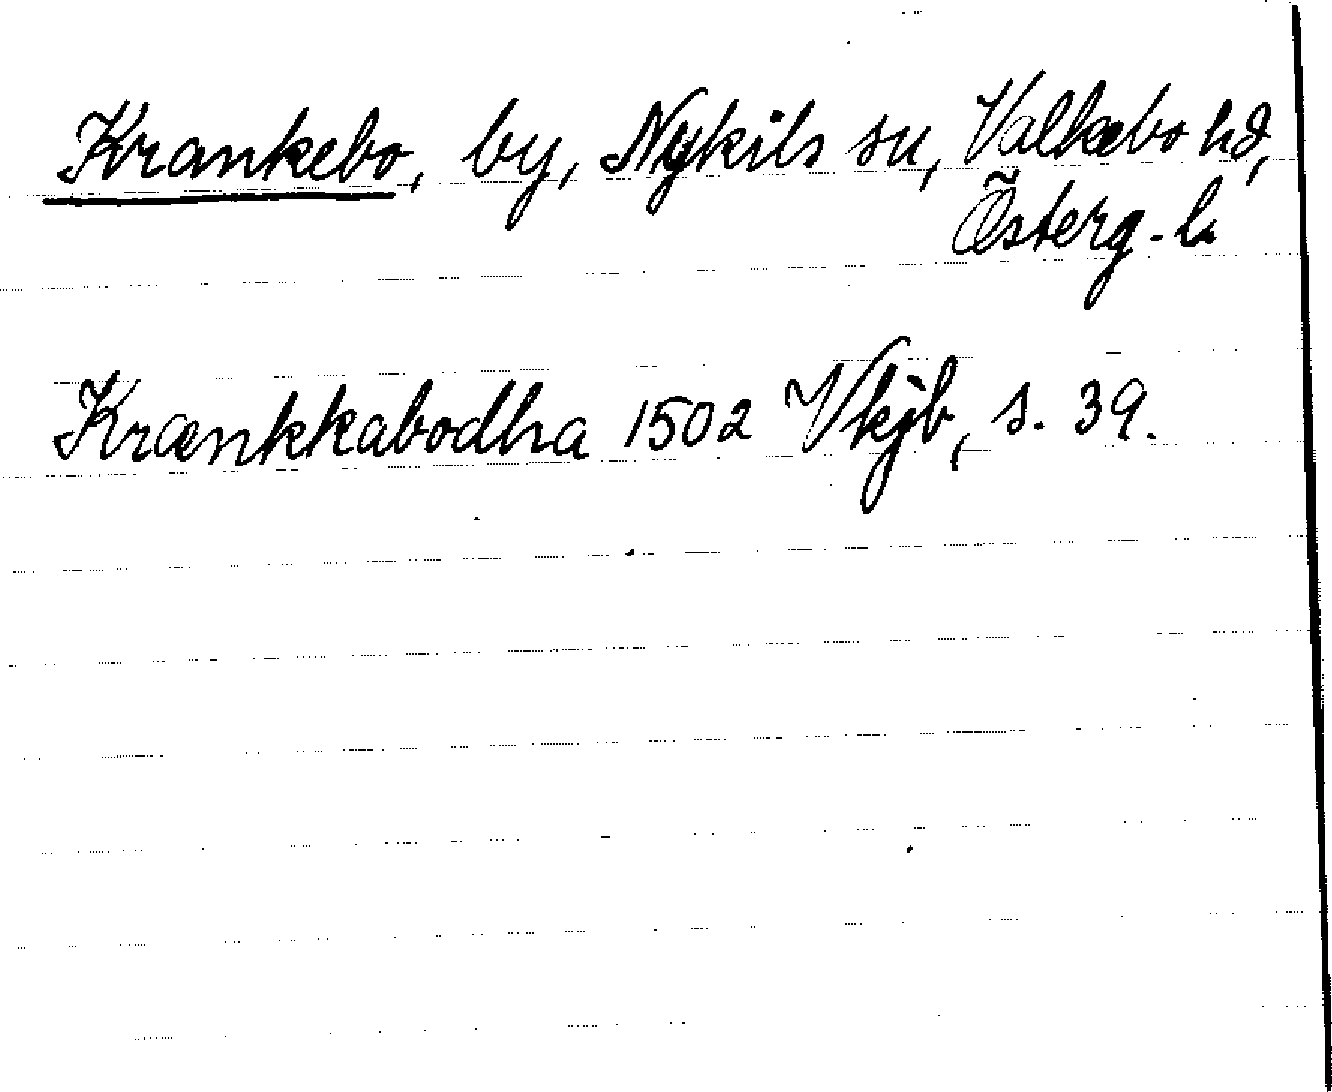 Krankebo, by, Nykils sn, Valkebo hd,
Österg-l.
Krænkkabodha 1502 Vkjb, s. 39.